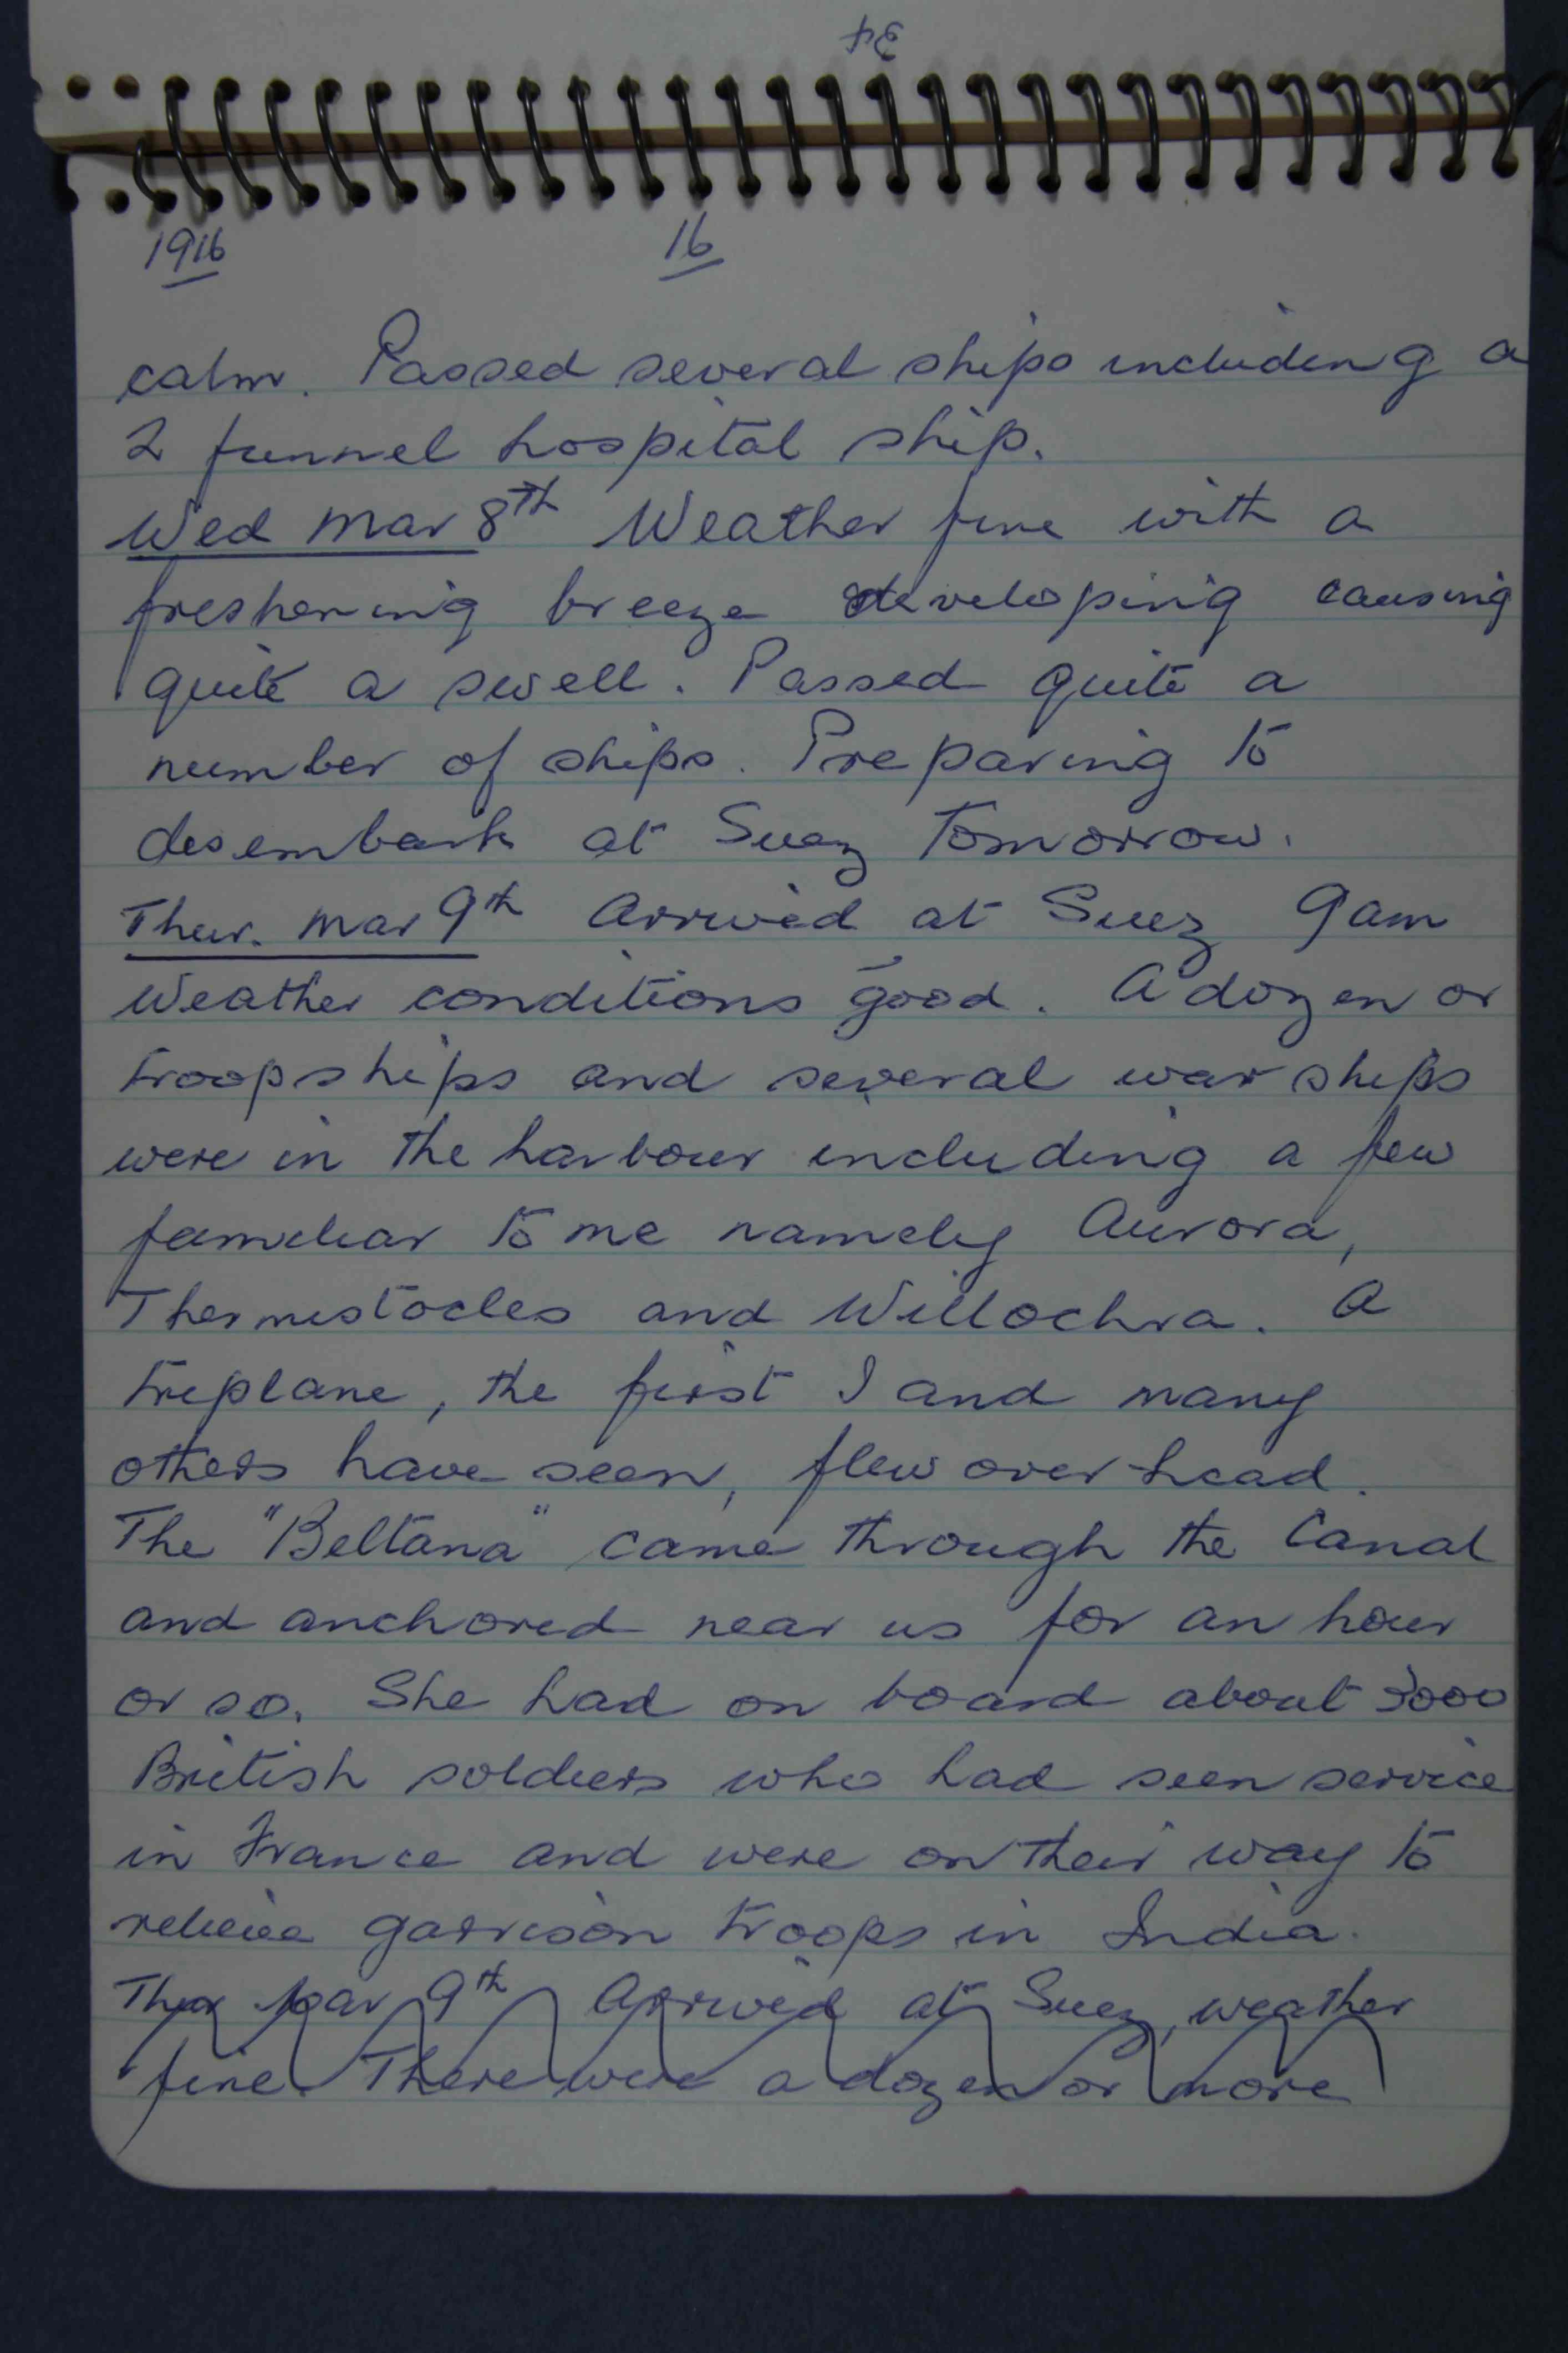 34
1916 16
calm. Passed several ships including a
2 funnel hospital ship.
Wed Mar 8th Weather fine with a
freshening breeze developing causing
quite a swell. Passed quite a
number of ships. Preparing to
disembark at Suez Tomorrow.
Thur. Mar 9th Arrived at Suez 9am
Weather conditions good. A dozen or
troopships and several war ships
were in the harbour including a few
familiar to me namely Aurora,
Themistocles and Willochra. A
triplane, the first I and many
others have seen, flew over head.
The "Beltana" came through the Canal
and anchored near us for an hour
or so. She had on board about 3000
British soldiers who had seen service
in France and were on their way to
relieve garrison troops in India.
Thur Mar 9th Arrived at Suez, weather
fine. There were a dozen or more